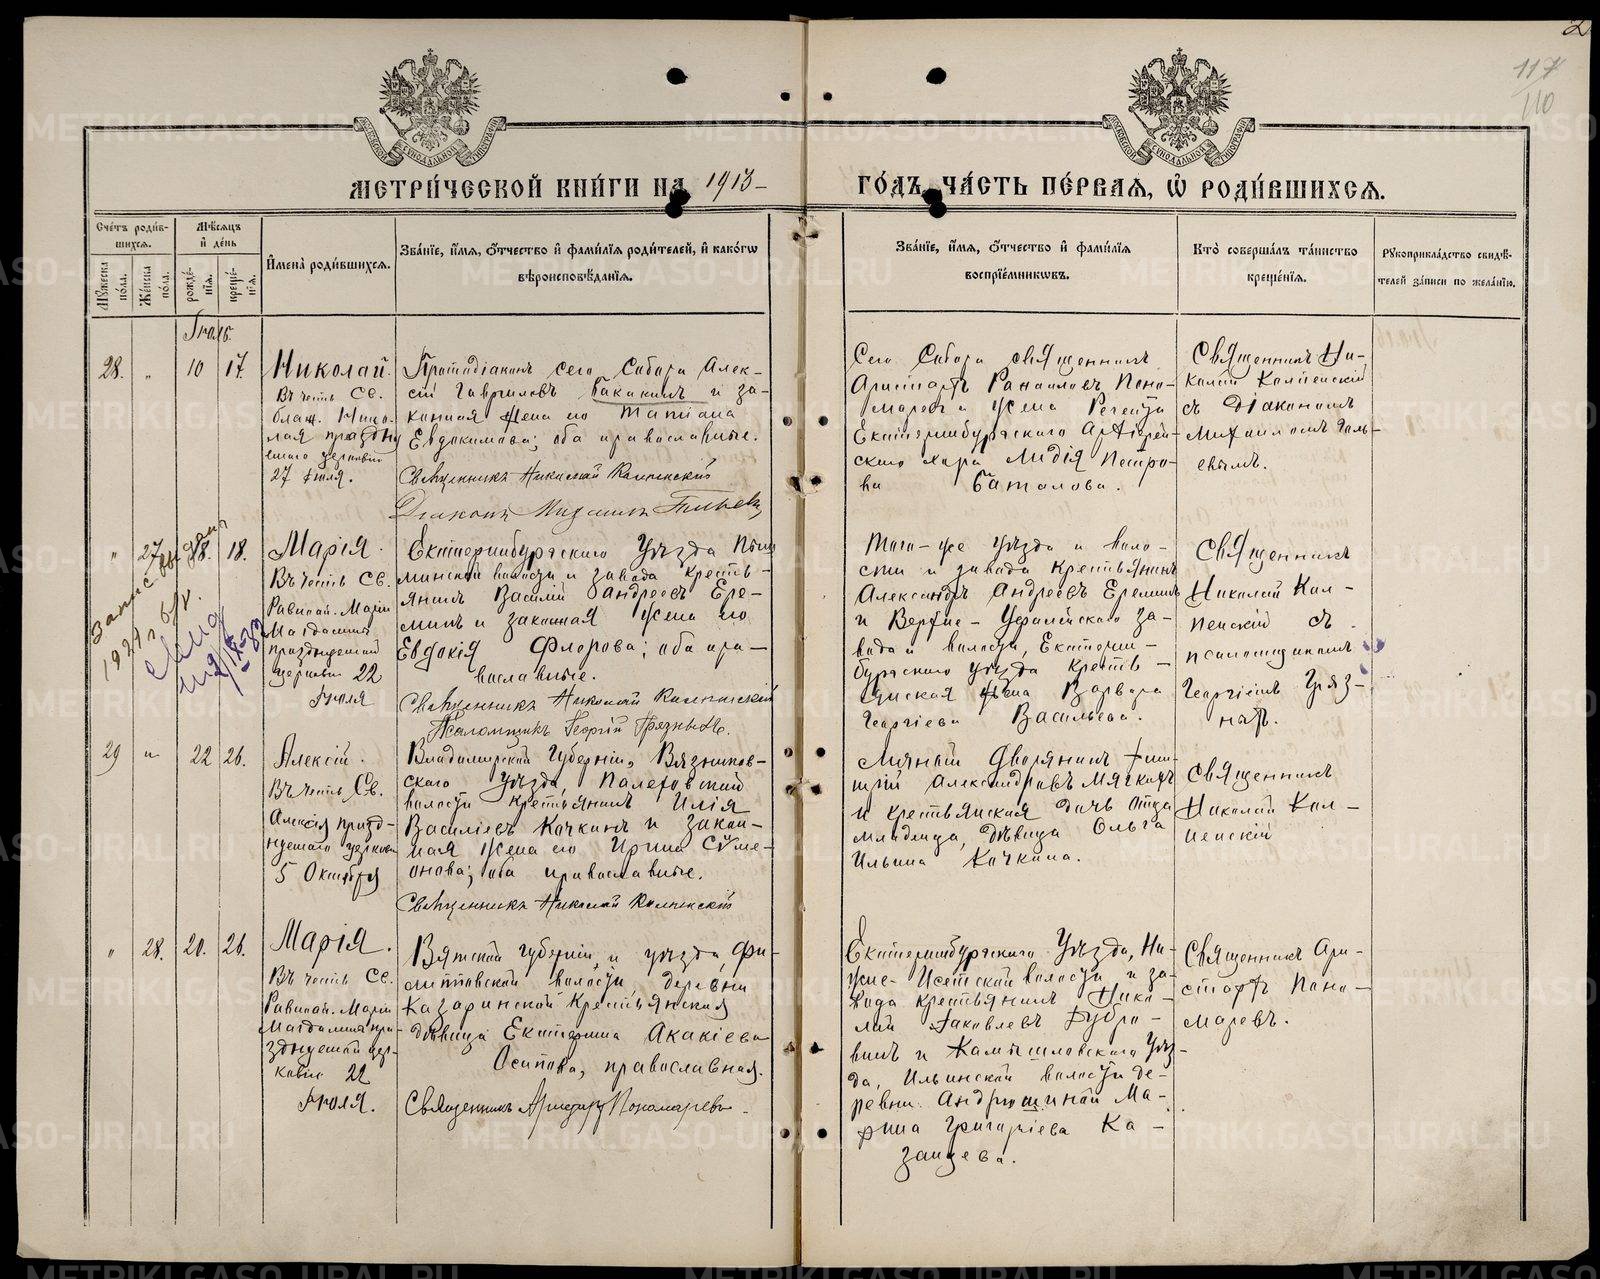 2
117
110
МЕТРИ́ЧЕСКОЙ КНИ́ГИ НА 1913 ГО́ДЪ, ЧА́СТЬ ПЕ́РВАЯ, Ѡ҆ РОДИ́ВШИХСѦ.
Сче́тъ роди́в-
шихсѧ.
Мѣ́сѧцъ
и҆ де́нь
Мꙋ́жеска по́ла.
Же́нска по́ла.
рожде́-
нїѧ.
креще́-
нїѧ.
И҆мена̀ роди́вшихсѧ.
Зва́нїе, и҆́мѧ, ѻ҆́тчество и҆ фами́лїѧ роди́телей, и҆ како́гѡ
вѣроисповѣ́данїѧ.
Зва́нїе, и҆́мѧ, ѻ҆́тчество и҆ фами́лїѧ
воспрїе́мникѡвъ.
Кто̀ соверша́лъ та́инство
креще́нїѧ.
Рꙋкоприкла́дство свидѣ́-
телей за́писи по жела́нїю.
Іюль.
28. " 10 17.
Николай.
Въ честь Св.
блаж. Нико-
лая праздну
емаго церковію
27 Іюля.
Протодіаконъ сего Собора Алек-
сій Гавриловъ Бакакинъ и за-
конная жена его Татіана
Евдокимова; оба православные.
Священникъ Николай Калпенскій
Діаконъ Михаилъ
Сего Собора священникъ
Аристархъ Понo-
маревъ и жена Регента
Екатеринбургскаго Архіерей-
скаго хора Лидія Петро-
ва Баталова.
Священникъ Ни-
колай Калпенскій
съ Діакономъ
Михаиломъ
" 27 18. 18.
Запись выдана
1927 г.
Марія.
Въ честь Св.
Равноап. Маріи
Магдалины
празднуемой
церковію 22
Іюля
Екатеринбургскаго Уѣзда Пыш
минской волости и завода кресть-
янинъ Василій Андреевъ Ере-
минъ и законная жена его
Евдокія Флорова; оба пра-
вославные.
Священникъ Николай Калпенскій
Псаломщикъ Георгій Грязныхъ.
Того-же уѣзда и воло-
сти и завода крестьянинъ
Александръ Андреевъ Ереминъ
и Верхне-Уфалейскаго за-
вода и волости, Екатерин-
бургскаго уѣзда кресть-
янская жена Варвара
Георгіева Васильева.
Священникъ
Николай Кал-
пенскій съ
псаломщикомъ
Георгіемъ Гряз-
ныхъ.
29 " 22 26.
Алексій.
Въ честь Св.
Алексія празд-
нуемаго церковію
5 Октября
Владимірской Губерніи, Вязников-
скаго уѣзда, Палеховской
волости крестьянинъ Илія
Василіевъ Кочкинъ и закон-
ная жена его Ирина Сѵме-
онова; оба православные.
Священникъ Николай Калпенскій
Личный Дворянинъ Дми-
трій Александровъ Мягковъ
и крестьянская дочь отца
младенца, дѣвица Ольга
Ильина Кочкина.
Священникъ
Николай Кал-
пенскій
" 28. 20. 26.
Марія.
Въ честь Св.
Равноап. Маріи
Магдалины пра-
зднуемой цер-
ковію 22
Іюля.
Вятской Губерніи, и уѣзда, Фи-
липповской волости, деревни
Казаринской Крестьянская
дѣвица Екатерина Акакіева
Осипова, православная.
Священникъ Аристархъ Пономаревъ.
Екатеринбургскаго Уѣзда, Ни-
жне-Исетской волости и за-
вода крестьянинъ Нико-
лай Яковлевъ Дубро-
винъ и Камышловскаго Уѣз-
да, Ильинской волости де-
ревни Андрюшиной Ма-
рина Григоріева Ка-
занцева.
Священникъ Ари-
стархъ Поно-
маревъ.
METRIKI.GASO-URAL.RU